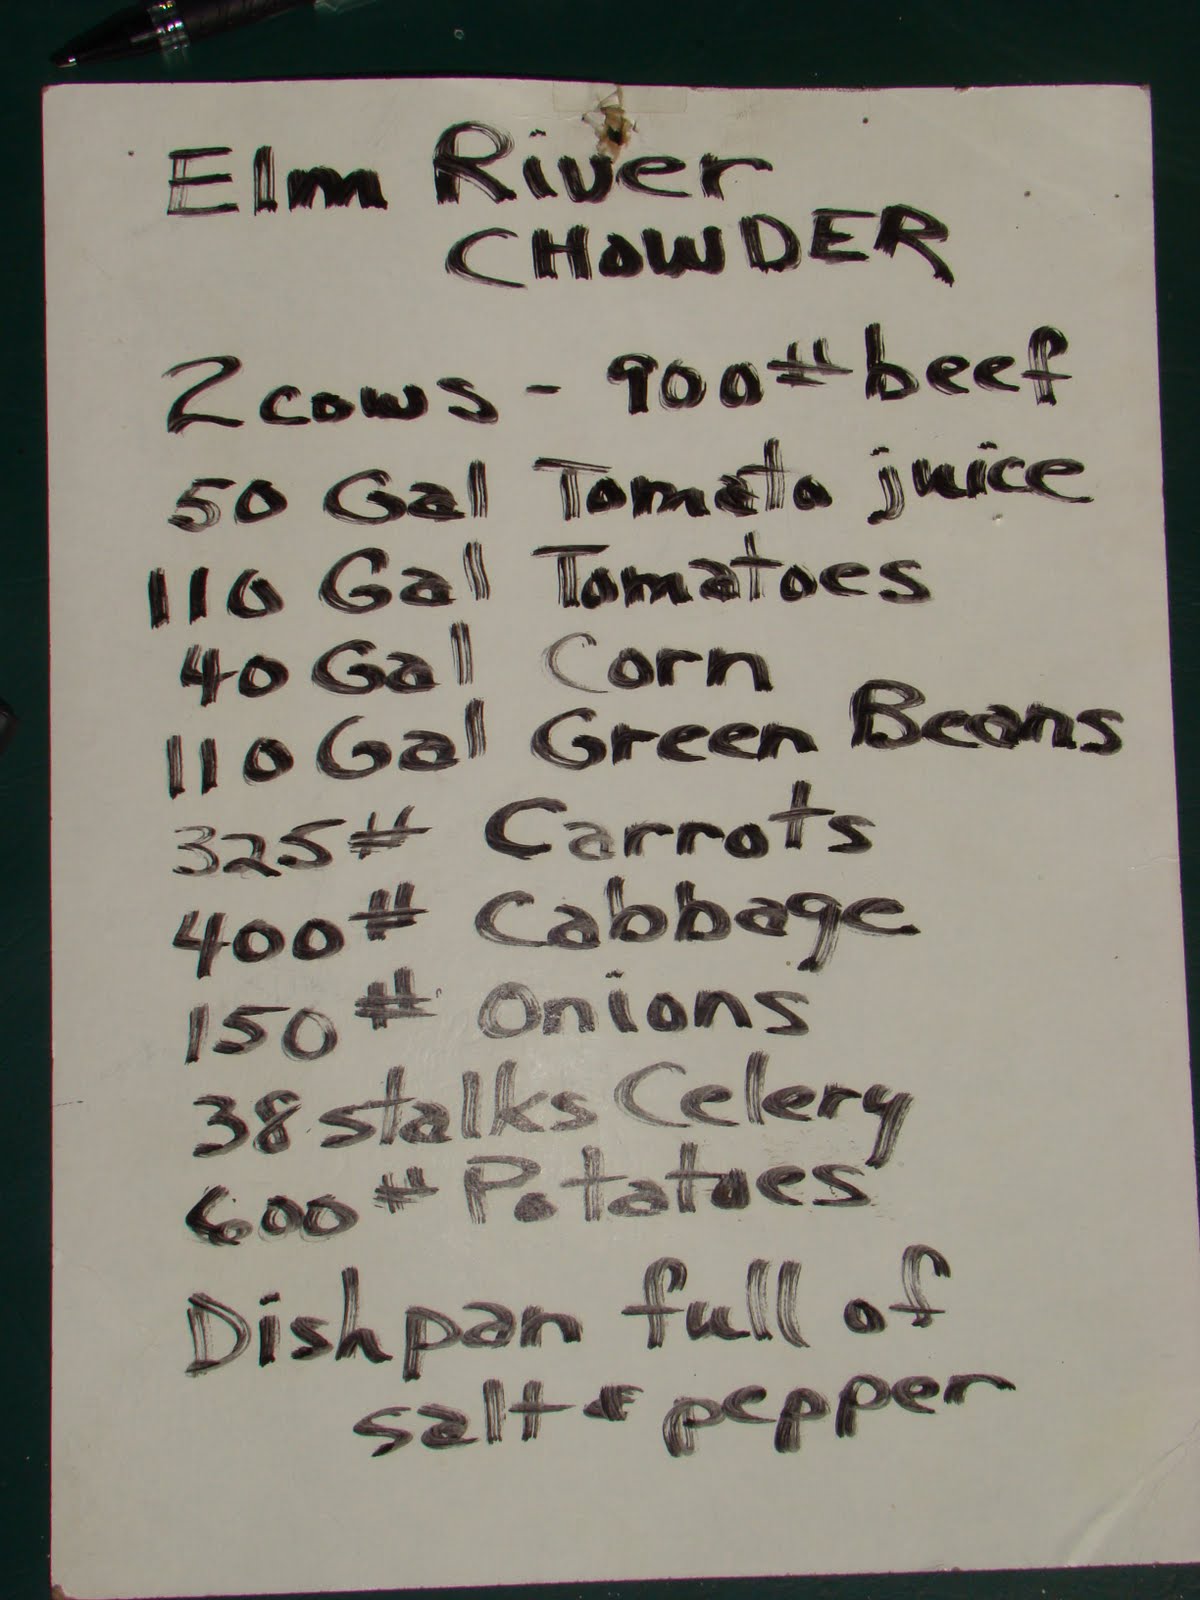 Elm River
CHOWDER
2 cows - 900# beef
50 Gal Tomato juice
110 Gal Tomatoes
40 Gal Corn
110 Gal Green Beans
325# Carrots
400# Cabbage
150# Onions
38 stalks Celery
600# Potatoes
Dishpan full of
salt & pepper